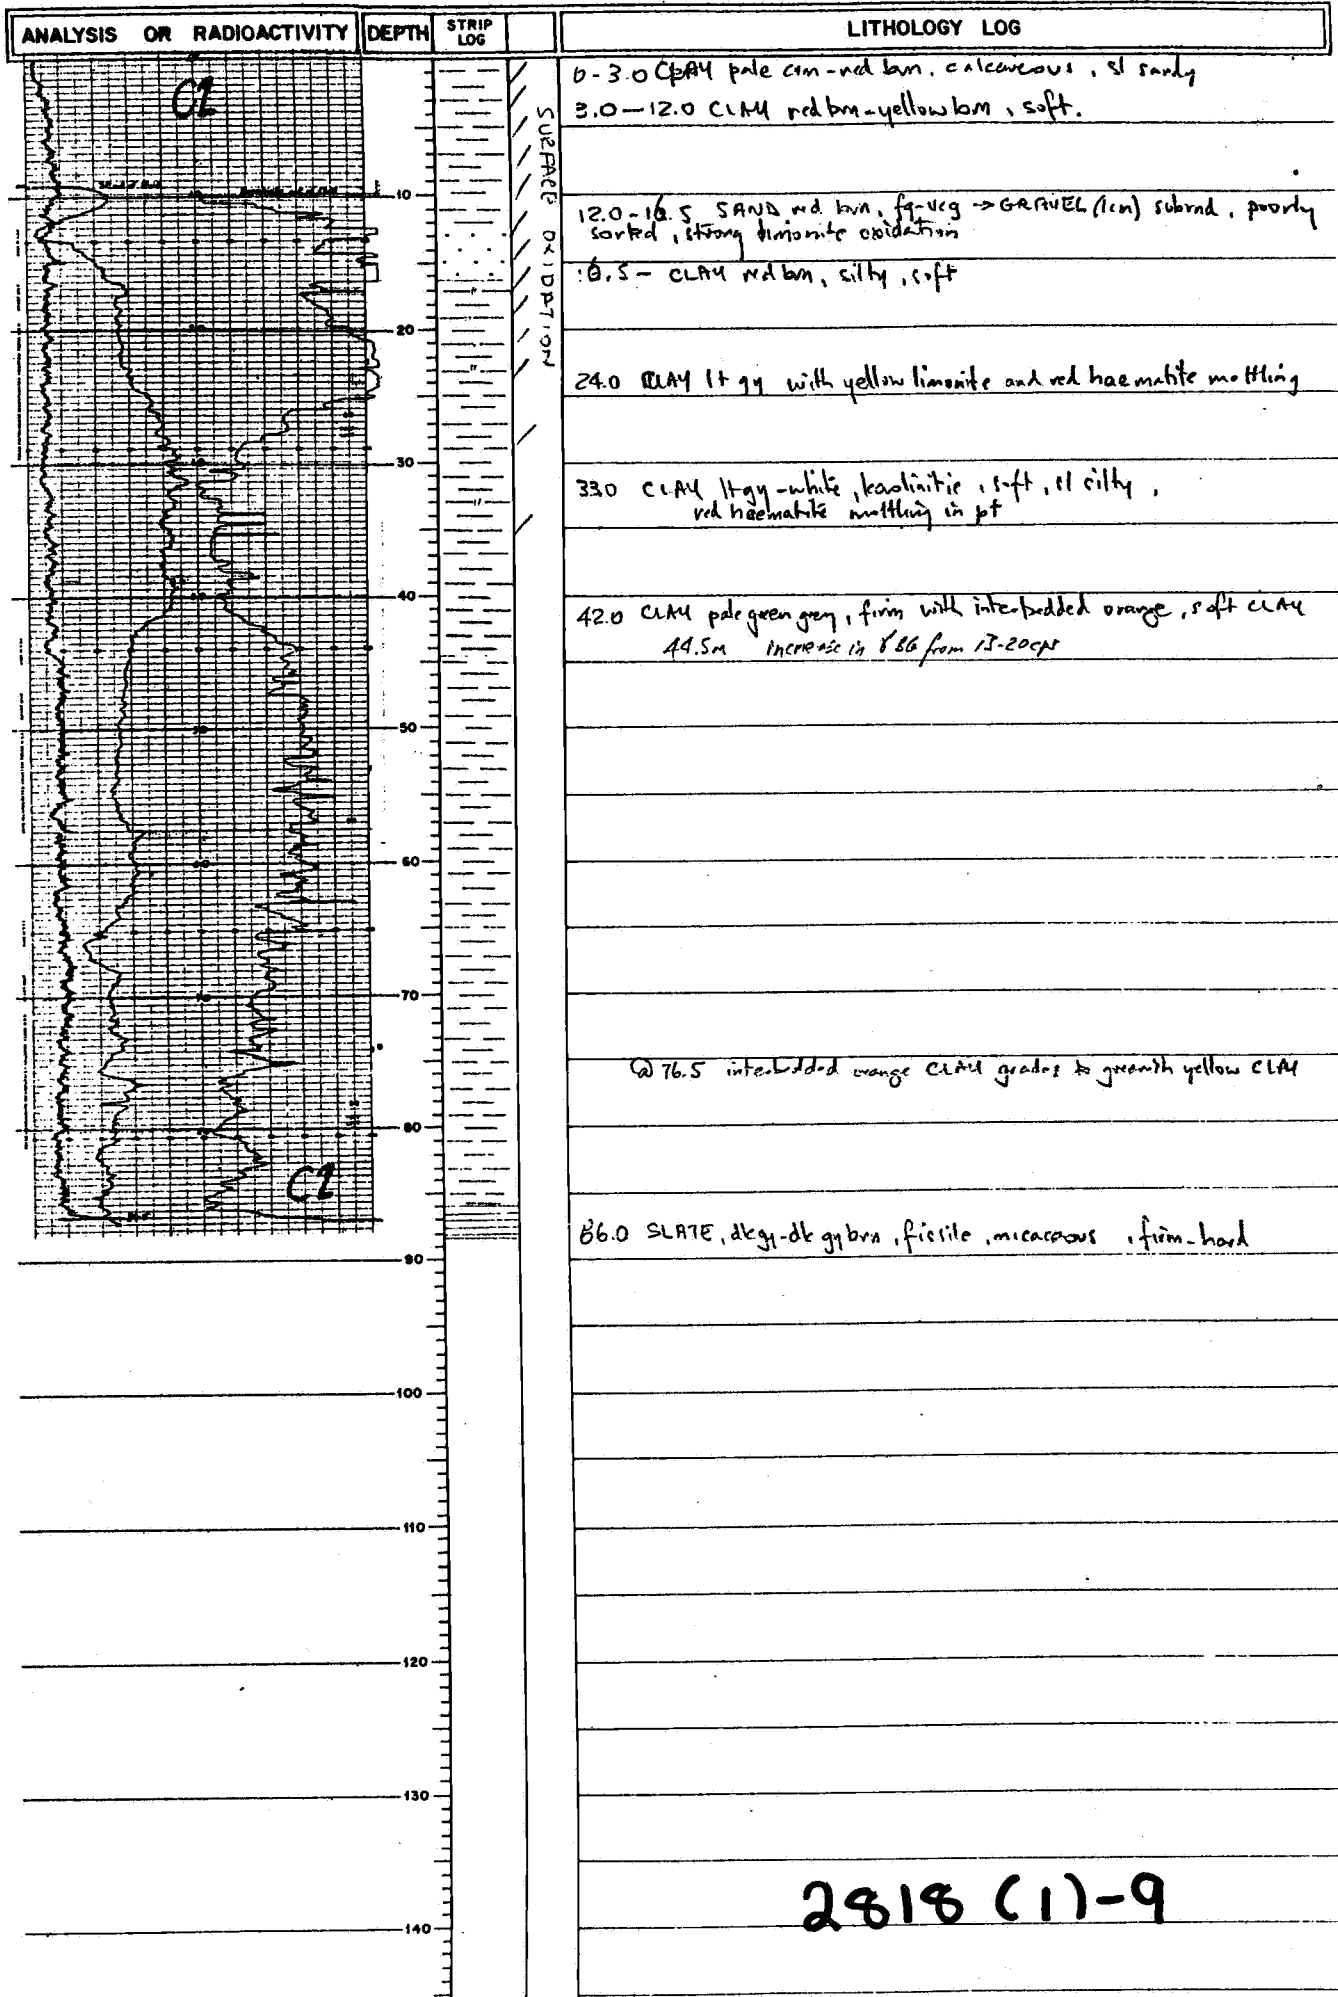 ANALYSIS OR RADIOACTIVITY DEPTH STRIP LOG LITHOLOGY LOG
C2
0-3.0 CLAY pale crm-red brn, calcareous, sl sandy
3.0-12.0 CLAY red brn-yellow brn, soft.
SURFACE OXIDATION
10
12.0-16.5 SAND red brn, fg-vcg → GRAVEL (1cm) subrnd, poorly
sorted, strong limonite oxidation
16.5- CLAY red brn, silty, soft
20
24.0 CLAY lt gy with yellow limonite and red haematite mottling
30
33.0 CLAY lt gy-white, kaolinitic, soft, sl silty,
red haematite mottling in pt
40
42.0 CLAY pale green grey, firm with interbedded orange, soft CLAY
44.5m increase in γ BG from 13-20cps
50
60
70
@ 76.5 interbedded orange CLAY grades to greenish yellow CLAY
80
C2
86.0 SLATE, dk gy-dk gy brn, fissile, micaceous, firm-hard
90
100
110
120
130
2818 (1)-9
140